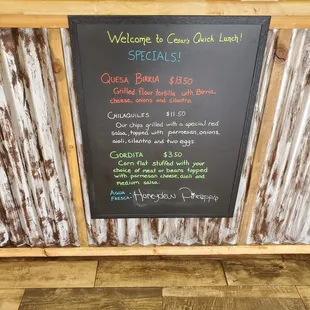 Welcome to Cesar's Quick Lunch!
SPECIALS!
QUESA BIRRIA $13.50
Grilled flour tortilla with Birria,
cheese, onions and cilantro.
CHILAQUILES $11.50
Our chips grilled with a special red
salsa, topped with parmesan, onions,
aioli, cilantro and two eggs.
GORDITA $3.50
Corn flat stuffed with your
choice of meat or beans topped
with parmesan cheese, aioli and
medium salsa.
AGUA
FRESCA: Honeydew Pineapple